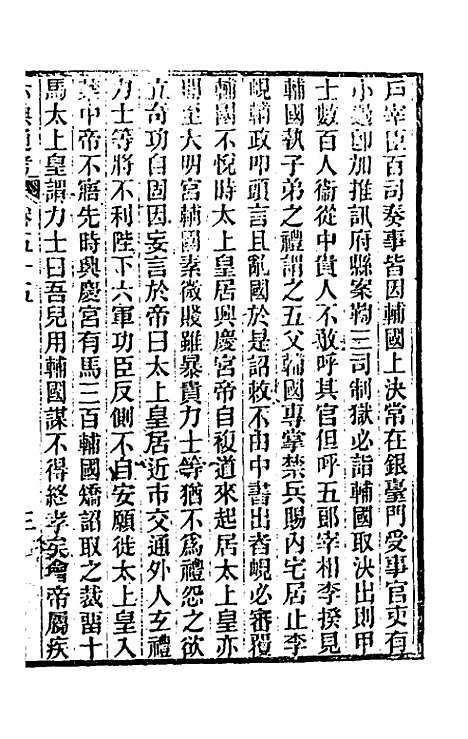 戶宰臣百司奏事皆因輔國上決常在銀臺門受事官吏有
小過即加推訊府縣案鞫三司制獄必詣輔國取決出則甲
士數百人衞從中貴人不敢呼其官但呼五郎宰相李揆見
輔國執子弟之禮謂之五父輔國專掌禁兵賜內宅居止李
峴輔政叩頭言且亂國於是詔敕不由中書出者峴必審覆
輔國不悅時太上皇居興慶宮帝自複道來起居太上皇亦
間至大明宮輔國素微賤雖暴貴力士等猶不爲禮怨之欲
立奇功自固因妄言於帝曰太上皇居近市交通外人玄禮
力士等將不利陛下六軍功臣反側不自安願徙太上皇入
禁中帝不寤先時興慶宮有馬三百輔國矯詔取之裁留十
馬太上皇謂力士曰吾兒用輔國謀不得終孝矣會帝屬疾
卷五十五
三